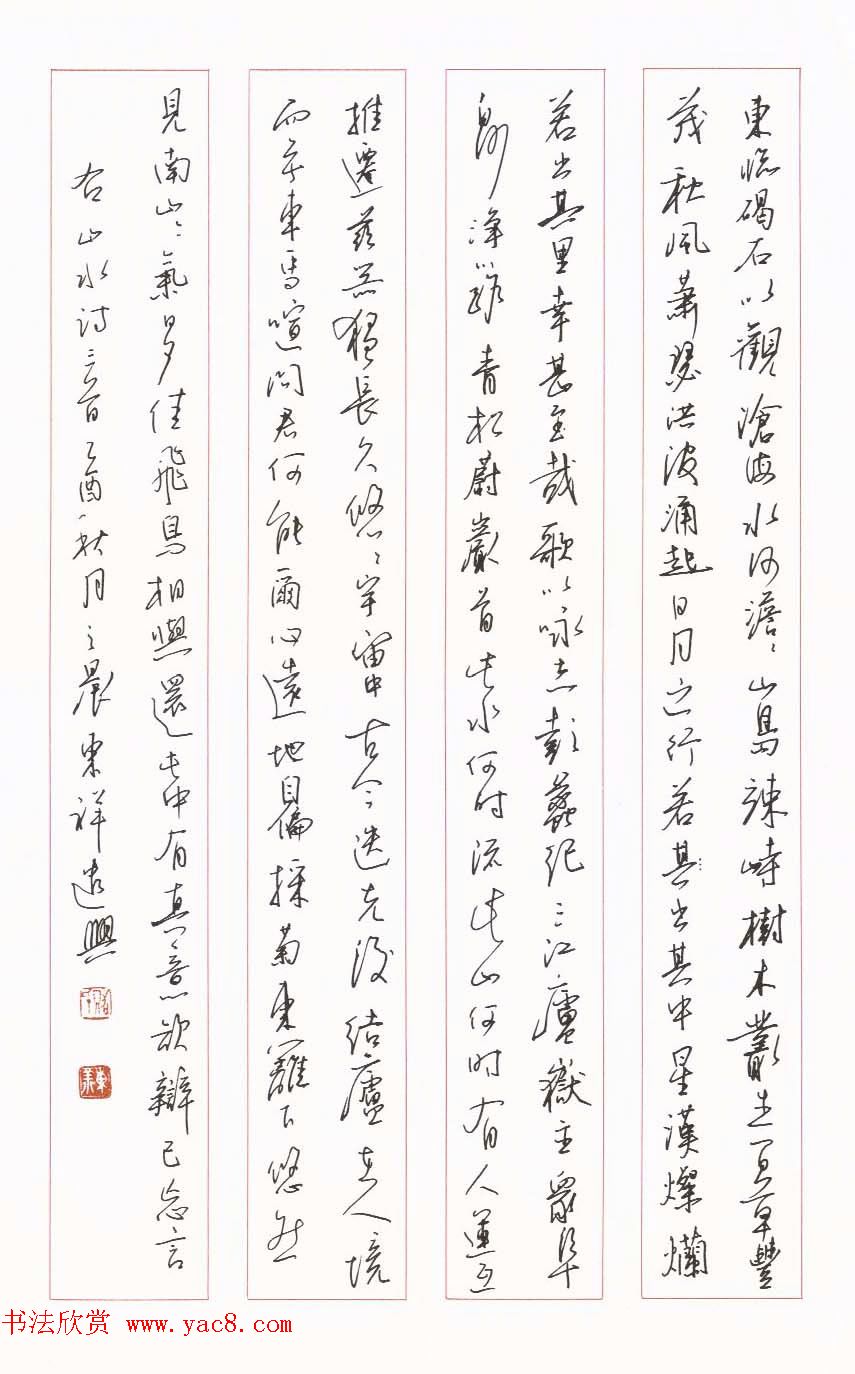 東臨碣石以觀滄海水何澹〻山島竦峙樹木叢生百草豐
茂秋風蕭瑟洪波涌起日月之行若其出其中星漢燦爛
若出其里幸甚至哉歌以咏志彭蠡紀三江廬嶽主衆阜
白沙淨川路青松蔚巖首此水何时流此山何時有人運互
推遷茲器獨長久悠〻宇宙中古今迭先後結廬在人境
而無車馬喧問君何能爾心遠地自偏採菊東籬下悠然
見南山〻氣日夕佳飛鳥相與還此中有真意欲辯已忘言
右山水诗三首乙酉秋月之晨東祥遣興
书法欣赏 www.yac8.com